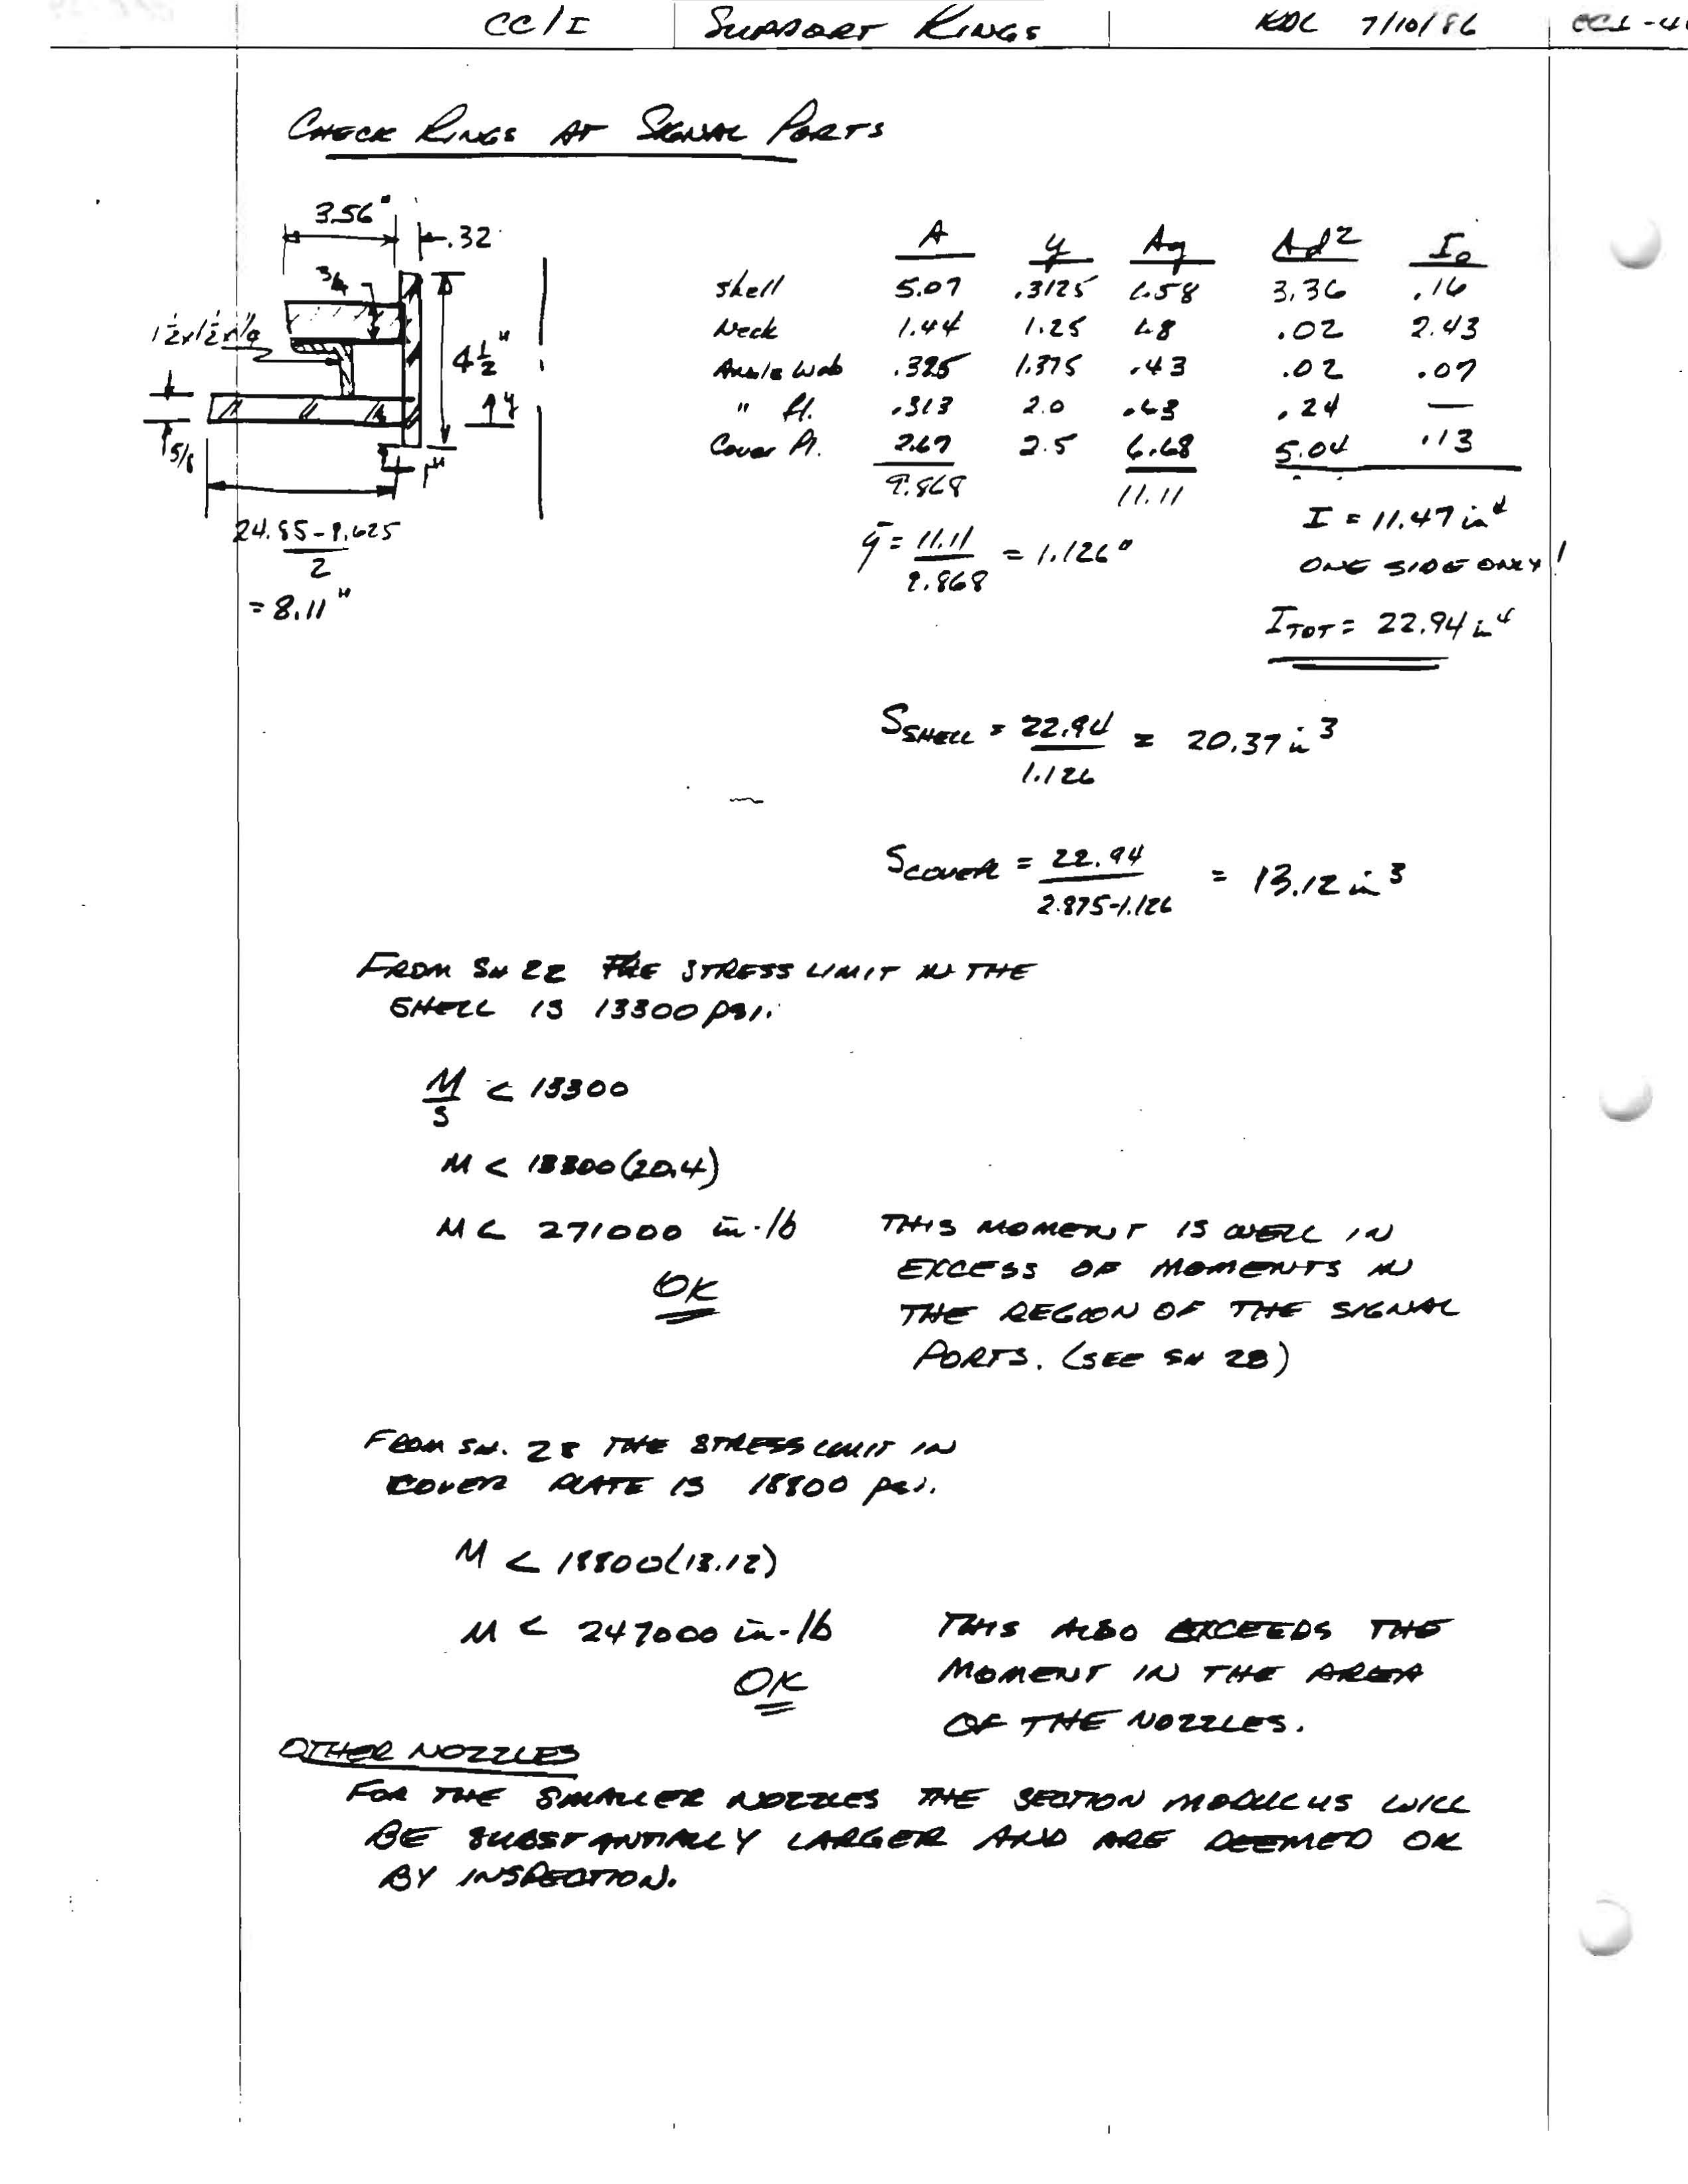 CC/I SUPPORT RINGS KDC 7/10/86
CHECK RINGS AT SIGNAL PORTS
3.56"
.32
3/4
4 1/2"
y
5/8
1"
24.85-8.625
2
= 8.11"
A y Ay Ad² I₀
Shell 5.07 .3125 1.58 3.36 .16
Neck 1.44 1.25 1.8 .02 2.43
Angle Web .325 1.375 .43 .02 .07
" fl. .313 2.0 .63 .24 —
Cover Pl. 2.67 2.5 6.68 5.04 .13
9.868 11.11
I = 11.47 in⁴
ONE SIDE ONLY!
ȳ = 11.11 / 9.868 = 1.126"
I TOT = 22.94 in⁴
S SHELL = 22.94 / 1.126 = 20.37 in³
S COVER = 22.94 / 2.875-1.126 = 13.12 in³
FROM SH 22 THE STRESS LIMIT IN THE
SHELL IS 13300 psi.
M/S < 13300
M < 13300(20.4)
M < 271000 in-lb
OK
THIS MOMENT IS WELL IN
EXCESS OF MOMENTS IN
THE REGION OF THE SIGNAL
PORTS. (SEE SH 28)
FROM SH. 28 THE STRESS LIMIT IN
COVER PLATE IS 18800 psi.
M < 18800(13.12)
M < 247000 in-lb
OK
THIS ALSO EXCEEDS THE
MOMENT IN THE AREA
OF THE NOZZLES.
OTHER NOZZLES
FOR THE SMALLER NOZZLES THE SECTION MODULUS WILL
BE SUBSTANTIALLY LARGER AND ARE DEEMED OK
BY INSPECTION.